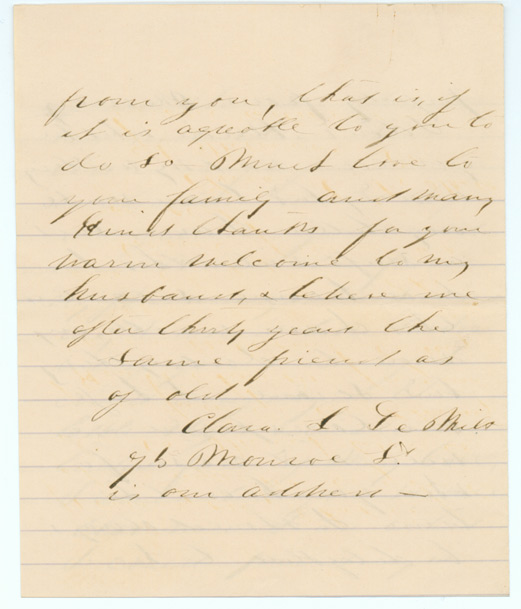 from you, that is, if
it is agreeable to you to
do so Much love to
your family and many
kind thanks for your
warm welcome to my
husband, & believe me
after thirty years the
same friend as
of old
Clara L De Mill
Monroe St.
is our address —